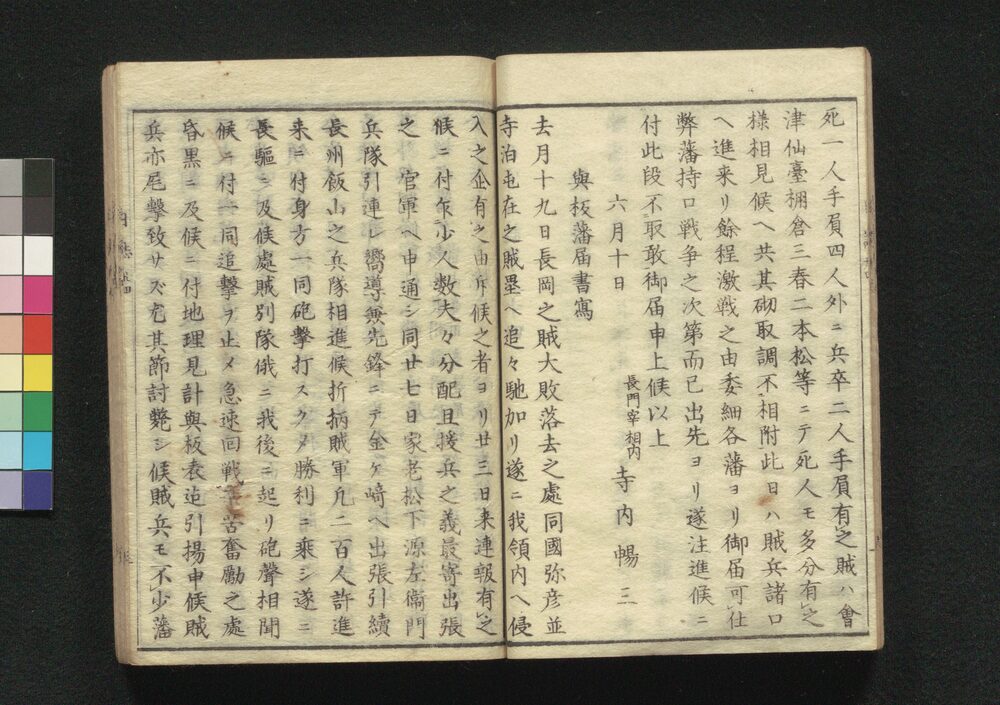 死一人手負四人外ニ兵卒二人手負有之賊ハ會
津仙臺棚倉三春二本松等ニテ死人モ多分有之
様相見候ヘ共其砌取調不相附此日ハ賊兵諸口
ヘ進来リ餘程激戦之由委細各藩ヨリ御届可仕
弊藩持口戦争之次第而已出先ヨリ遂注進候ニ
付此段不取敢御届申上候以上
長門宰相内
六月十日 寺内暢三
與板藩届書寫
去月十九日長岡之賊大敗落去之處同國弥彦並
寺泊屯在之賊塁ヘ追々馳加リ遂ニ我領内ヘ侵
入之企有之由斥候之者ヨリ廿三日来連報有之
候ニ付乍少人数夫々分配且援兵之義最寄出張
之官軍ヘ申通シ同廿七日家老松下源左衞門
兵隊引連レ嚮導兼先鋒ニテ金ケ﨑ヘ出張引續
長州飯山之兵隊相進候折柄賊軍凡二百人許進
来ニ付身方一同砲撃打スクメ勝利ニ乗シ遂ニ
長驅ニ及候處賊別隊俄ニ我後ニ起リ砲聲相聞
候ニ付一同追撃ヲ止メ急速回戦苦奮勵之處
昏黒ニ及候ニ付地理見計與板表迄引揚申候賊
兵亦尾撃致サズ尤其節討斃シ候賊兵モ不少藩